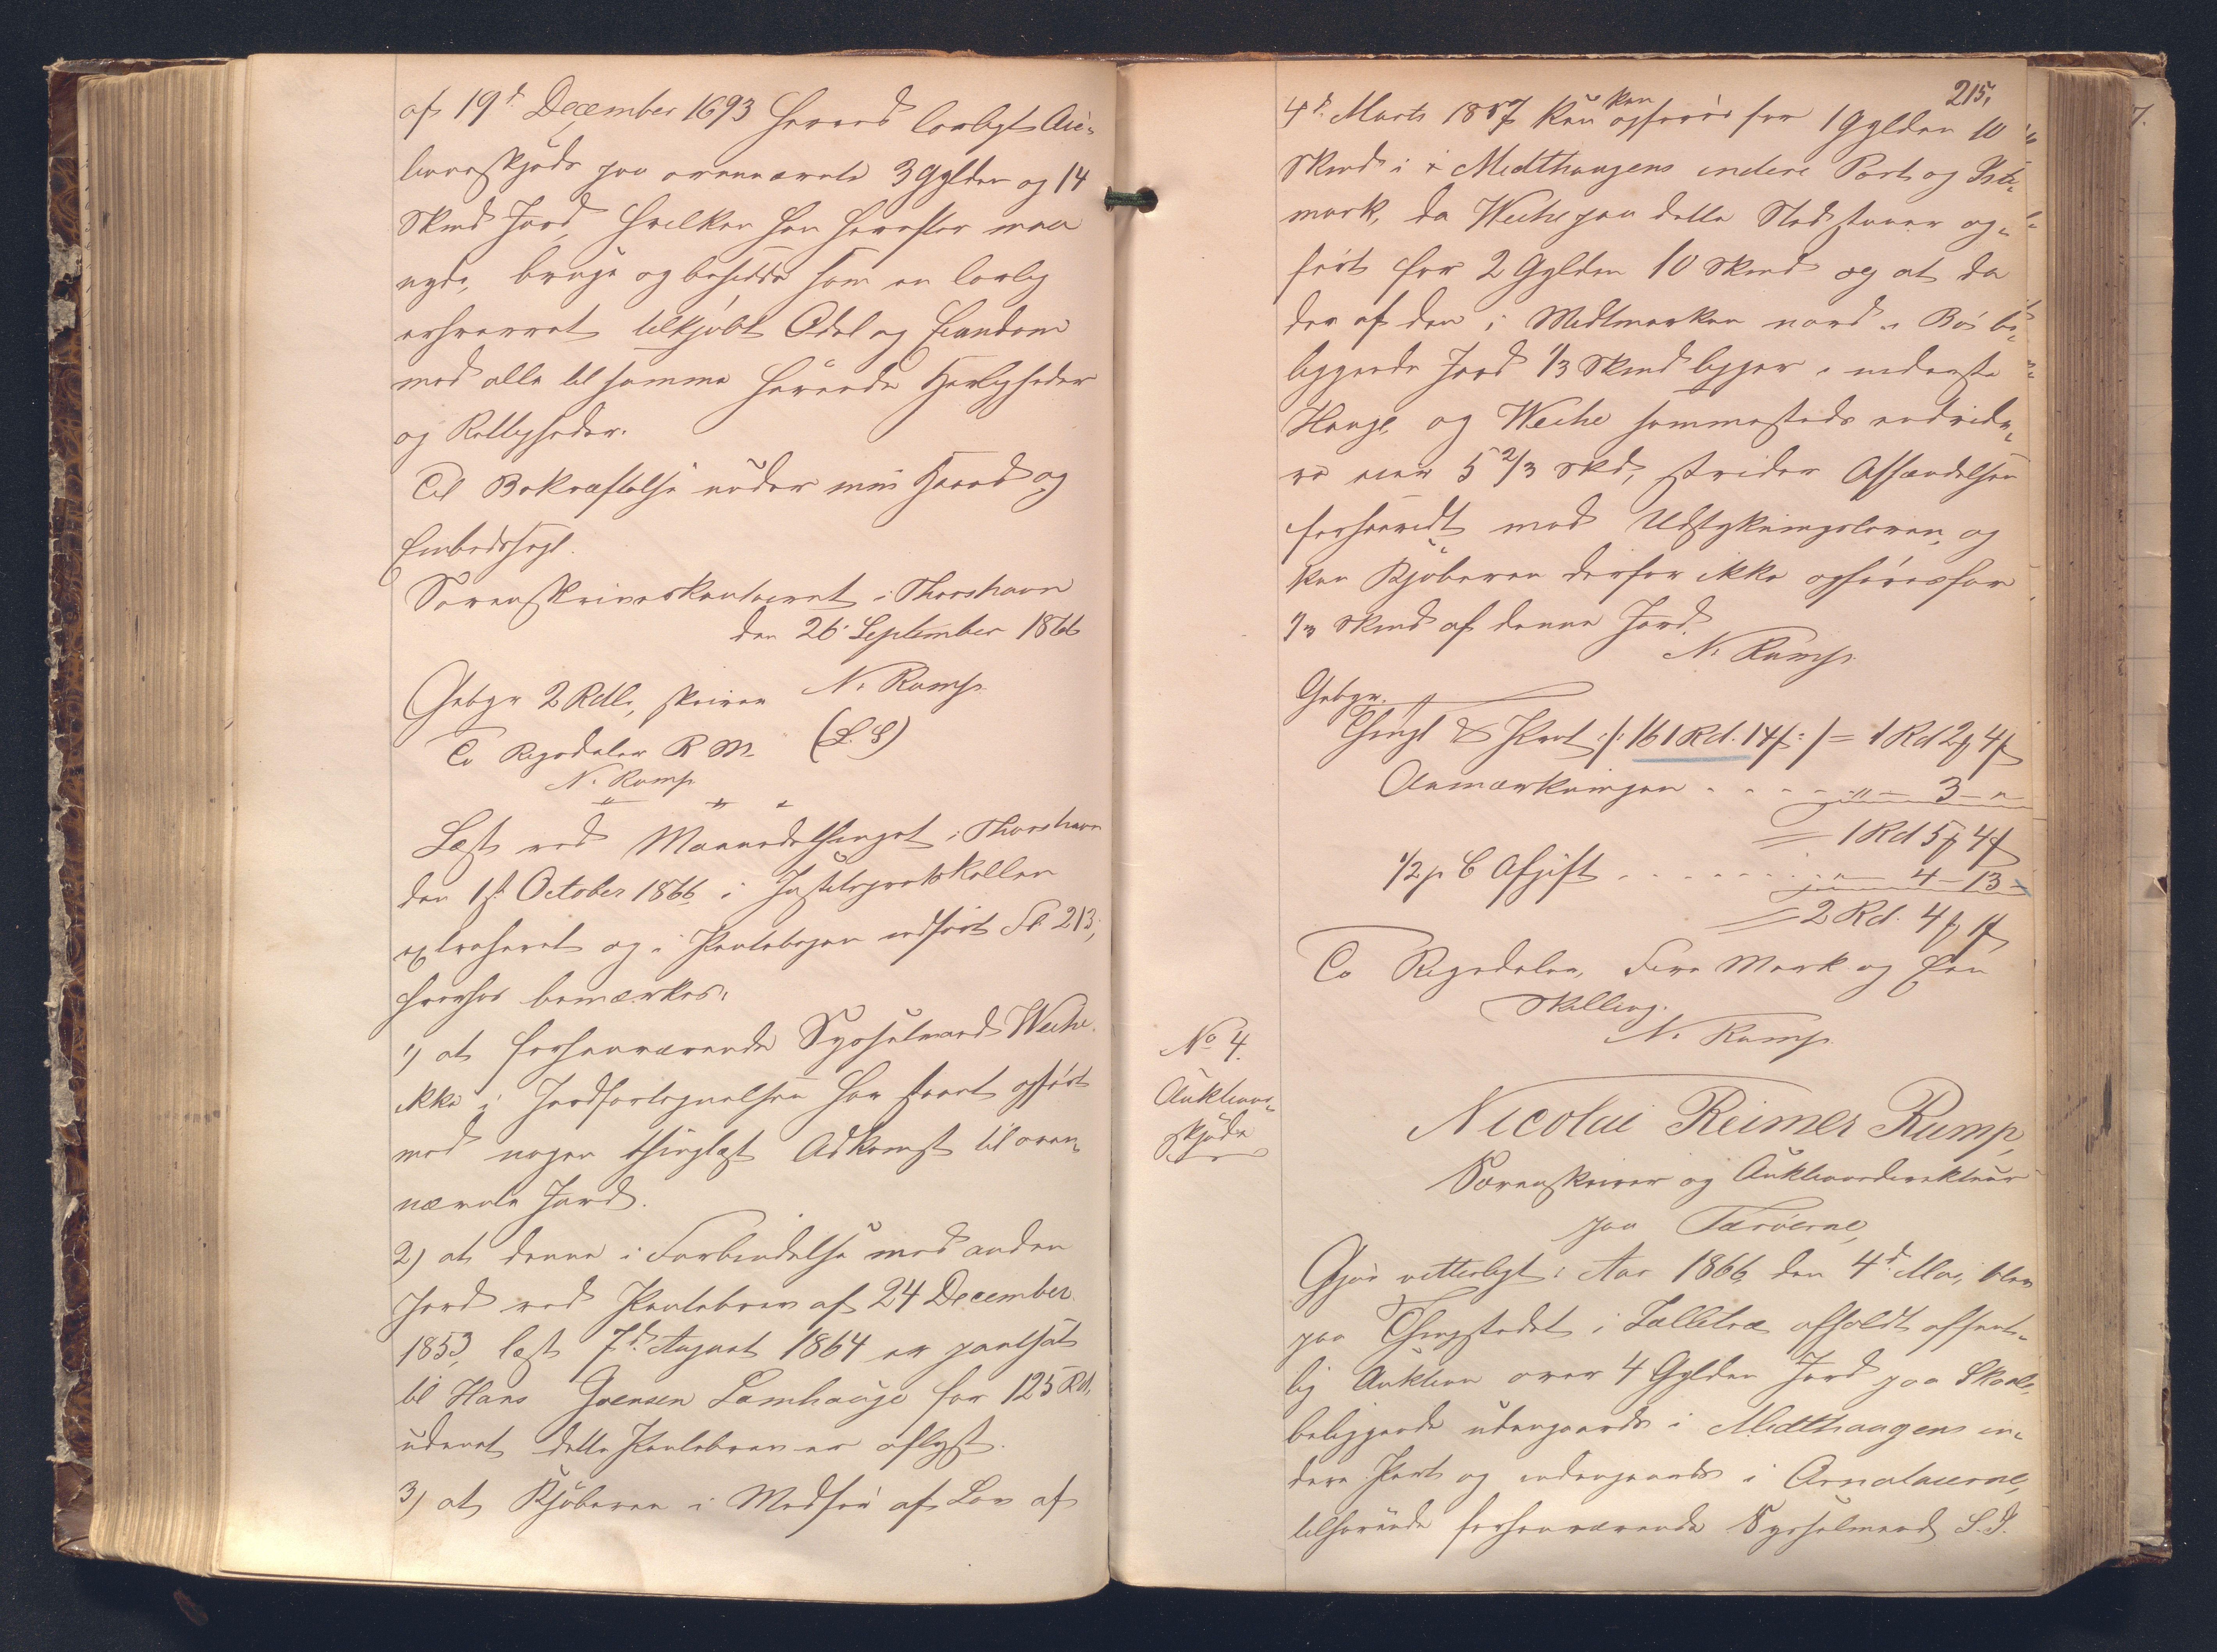 af 19d December 1693 herved lovligt Auc-
tionsskjøde paa ovennævnte 3 Gylden og 14
Skind Jord, hvilken han herefter maa
nyde, bruge og besidde som en lovlig
erhvervet tilkjøbt Odel og Eiendom
med alle til samme hørende Herligheder
og Rettigheder.
Til Bekræftelse under min Haand og
Embedssegl.
Sorenskriverkontoret i Thorshavn
den 26' September 1866
Gebyr 2 Rdlr, skriver N. Rump.
To Rigsdaler R. M. (L. S)
N. Rump
Læst ved Maanedsthinget i Thorshavn
den 1st October 1866, i Justitsprotokollen
extraheret og i Pantebogen indført Fol 213,
hvorhos bemærkes:
1) at forhenværende Sysselmand Weihe
ikke i Jordfortegnelsen har staaet opført
med nogen thinglæst Adkomst til oven-
nævnte Jord.
2) at denne i Forbindelse med anden
Jord ved Pantebrev af 24 December
1853, læst 7d August 1864 er pantsat
til Hans Joensen Lamhauge for 125 Rd,
uden at dette Pantebrev er aflyst.
3) at Kjøberen i Medfør af Lov af
215,
4d. Marts 1857 kun kan opføres for 1 Gylden 10
Skind i Midthaugens indere Part og
mark, da Weihe paa dette Sted staaer op-
ført for 2 Gylden 10 Skind og at da
der af den i Midtmarken nord i Bø be-
liggende Jord 1/3 Skind ligger i nederste
Hauge, og Weihe sammesteds
5 2/3 Skd, strider Afhændelsen
forsaavidt mod Udstykningsloven, og
kan Kjøberen derfor ikke opføres for
1/3 Skind af denne Jord.
N. Rump.
Gebyr.
Thingl & Prot /: 161 Rd. 14 ß :/ = 1 Rd 2 ₻ 4 ß
Anmærkningen . . . . " - 3 - "
= 1 Rd 5 ₻ 4 ß
1/2 p C Afgift . . . . . . . " - 4 - 13 -
= 2 Rd. 4 ₻ 1 ß
To Rigsdaler, Fire Mark og Een
Skilling.
N. Rump.
No 4.
Auktions-
skjøde
Nicolai Reimer Rump,
Sorenskriver og Auktionsdirekteur
paa Færøerne,
Gjør vitterligt: Aar 1866 den 4d. Mai, blev
paa Thingstedet i Tælletræ afholdt offent-
lig Auktion over 4 Gylden Jord paa Skaale,
beliggende udengaards i Midthaugens in-
dere Part og indengaards i Arnatuerne,
tilhørende forhenværende Sysselmand S. J.